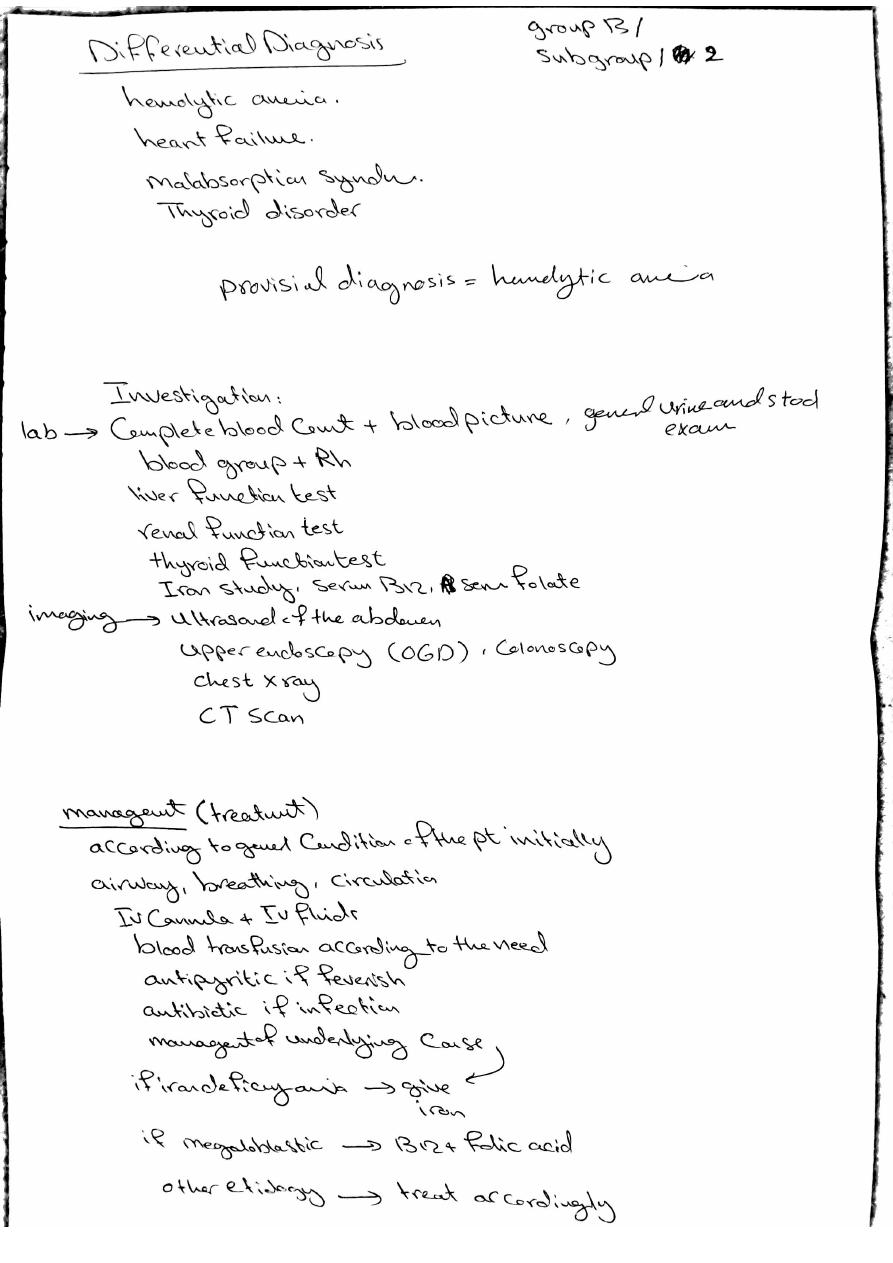 Differential Diagnosis
group B /
subgroup / 2
hemolytic anemia.
heart failure.
malabsorption syndrom.
Thyroid disorder
provisial diagnosis = hemolytic anemia
Investigation:
lab → Complete blood Count + blood picture, general urine and stool
exam
blood group + Rh
liver function test
renal function test
thyroid function test
Iron study, serum B12, serum folate
imaging → Ultrasound of the abdomen
Upper endoscopy (OGD), Colonoscopy
chest x ray
CT scan
managemt (treatmt)
according to general Condition of the pt initially
airway, breathing, circulation
IV Cannula + IV fluids
blood transfusion according to the need
antipyritic if feverish
antibiotic if infection
managemt of underlying Cause
if iron deficiency anemia → give
iron
if megaloblastic → B12 + folic acid
other etiology → treat accordingly